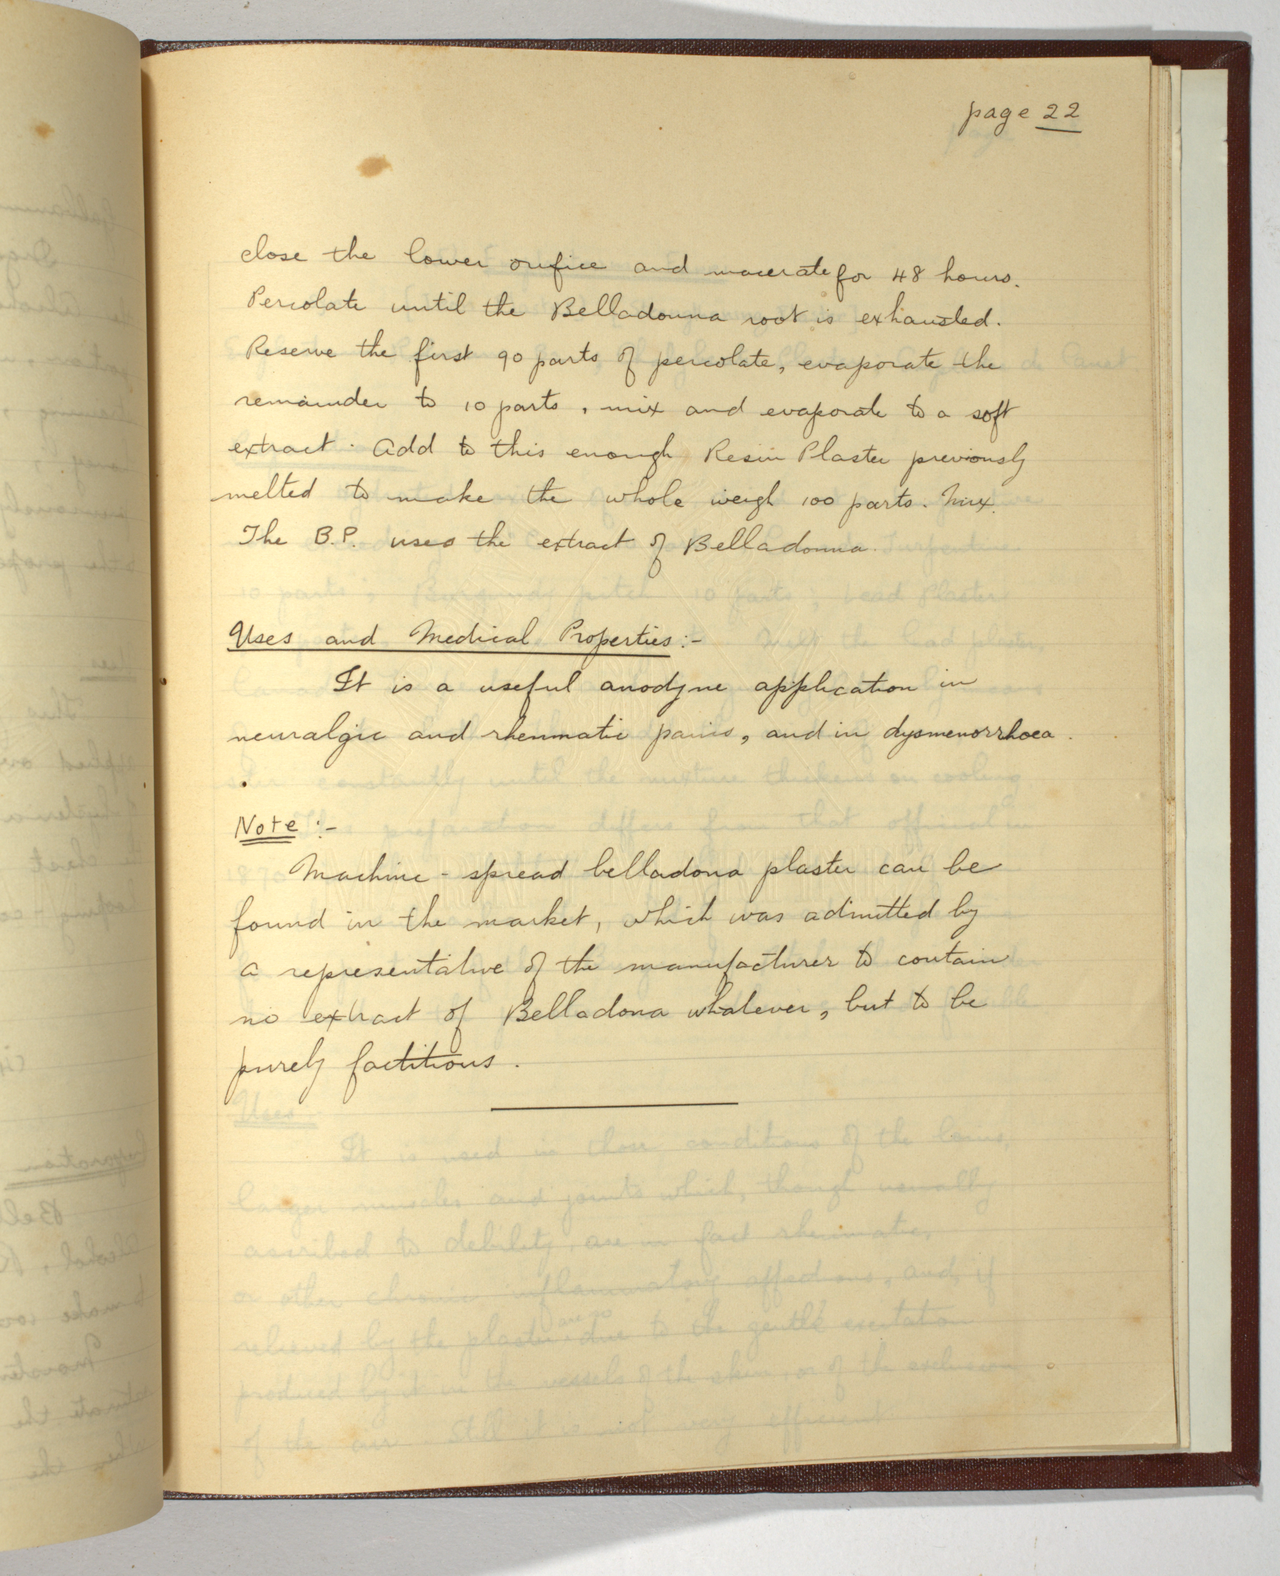 page 22
close the lower orifice and macerate for 48 hours.
Percolate until the Belladonna root is exhausted.
Reserve the first 90 parts of percolate, evaporate the
remainder to 10 parts, mix and evaporate to a soft
extract. Add to this enough Resin Plaster previously
melted to make the whole weigh 100 parts. Mix.
The B.P. uses the extract of Belladonna.
Uses and Medical Properties:-
It is a useful anodyne application in
neuralgic and rheumatic pains, and in dysmenorrhoea.
Note:-
Machine-spread belladona plaster can be
found in the market, which was admitted by
a representative of the manufacturer to contain
no extract of Belladona whatever, but to be
purely factitious.